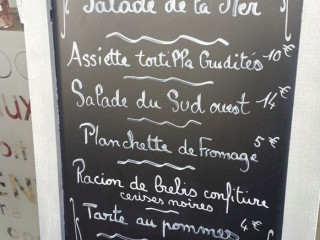 Salade de la Mer
Assiette tortilla Crudités 10€
Salade du Sud ouest 14€
Planchette de Fromage 5€
Racion de brebis confiture
cerises noires
Tarte au pommes 4€